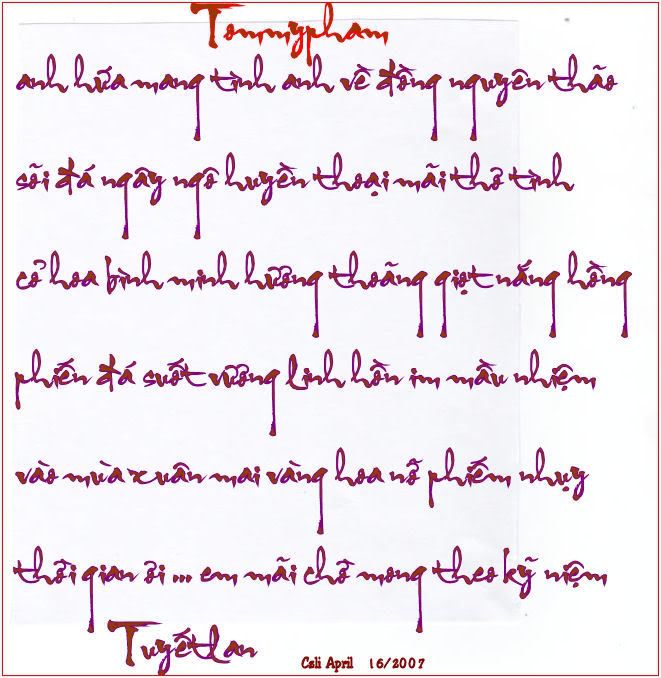 Tommypham
anh hứa mang tình anh về đồng nguyên thão
sõi đá ngây ngô huyền thoại mãi thơ tình
cỏ hoa bình minh hưởng thoãng giọt nắng hồng
phiến đá suốt vưởng linh hồn im mầu nhiệm
vào mùa xuân mai vàng hoa nỗ phiếm nhụy
thời gian ơi ... em mãi chờ mong theo kỹ niệm
Tuyếtlan
Csli April 16/2007